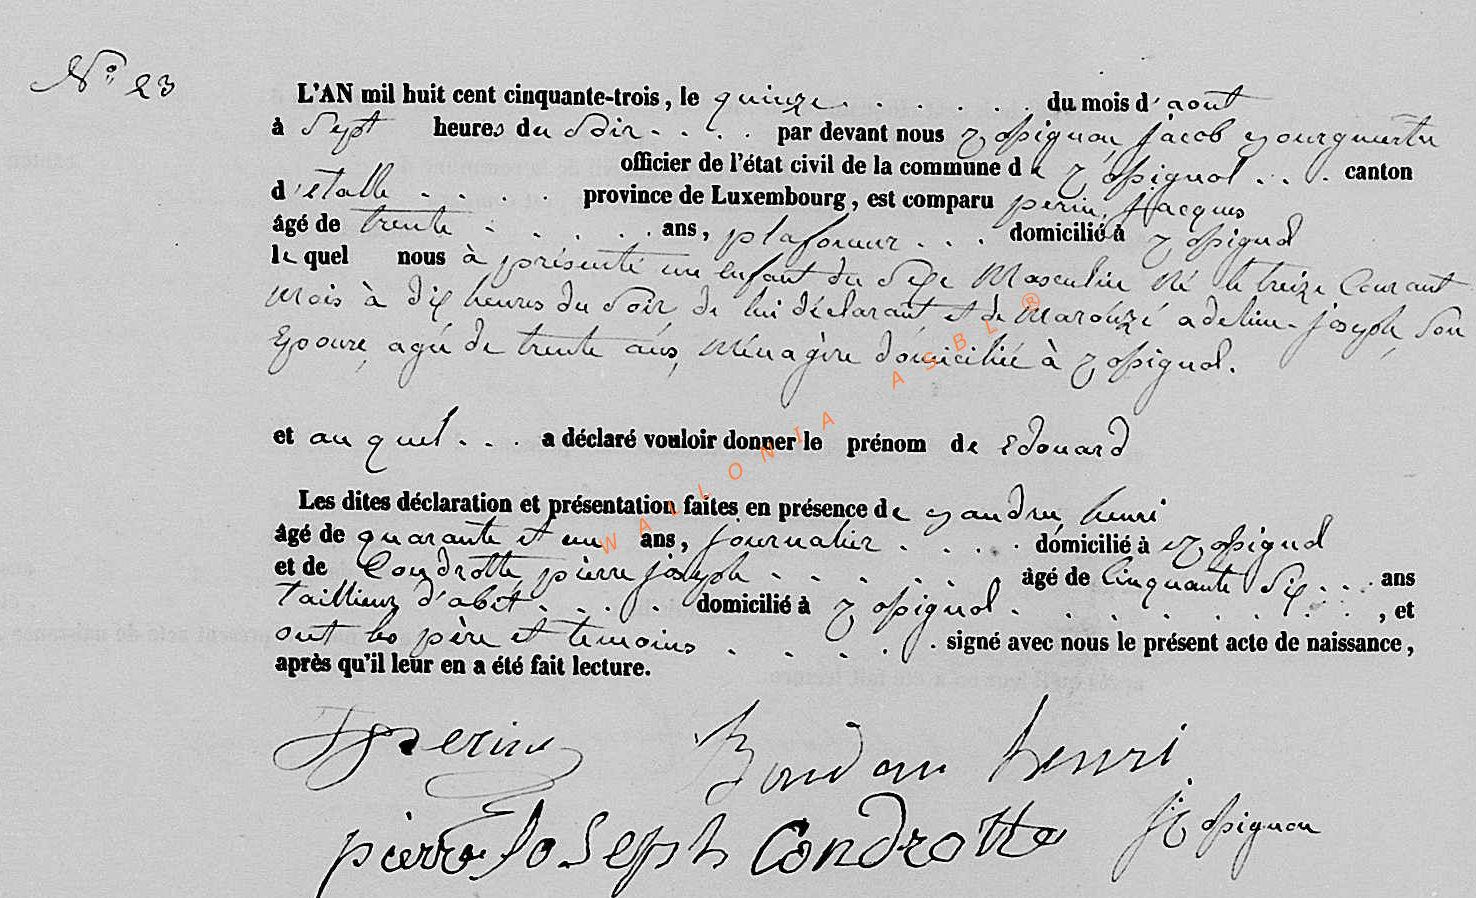 N° 23
L'AN mil huit cent cinquante-trois, le quinze . . . . . . du mois d'aout
à Sept heures du Soir . . . . par devant nous Rossignon Jacob Bourgmestre
officier de l'état civil de la commune de Rossignol . . . canton
d'étalle . . . . province de Luxembourg, est comparu perin, Jacques
âgé de trente . . . . . ans, plafoneur . . . domicilié à Rossignol
le quel nous à présenté un enfant du Sexe Masculin né le treize Courant
mois à dix heures du Soir de lui déclarant et de Marouzé adeline-joseph, Son
Epouse, agée de trente ans, Ménagère domiciliée à Rossignol.
et au quel . . . a déclaré vouloir donner le prénom de Edouard
Les dites déclaration et présentation faites en présence de henri
âgé de quarante et un ans, journalier . . . . domicilié à Rossignol
et de Condrotte, pierre joseph . . . . . . âgé de Cinquante Six . . . ans
Tailleur d'abit . . . . domicilié à Rossignol . . . . . . . , et
ont les père et temoins . . . . . signé avec nous le présent acte de naissance,
après qu'il leur en a été fait lecture.
JPerin henri
pierre JoSeph Condrotte JRossignon
WALLONIA ASBL ®